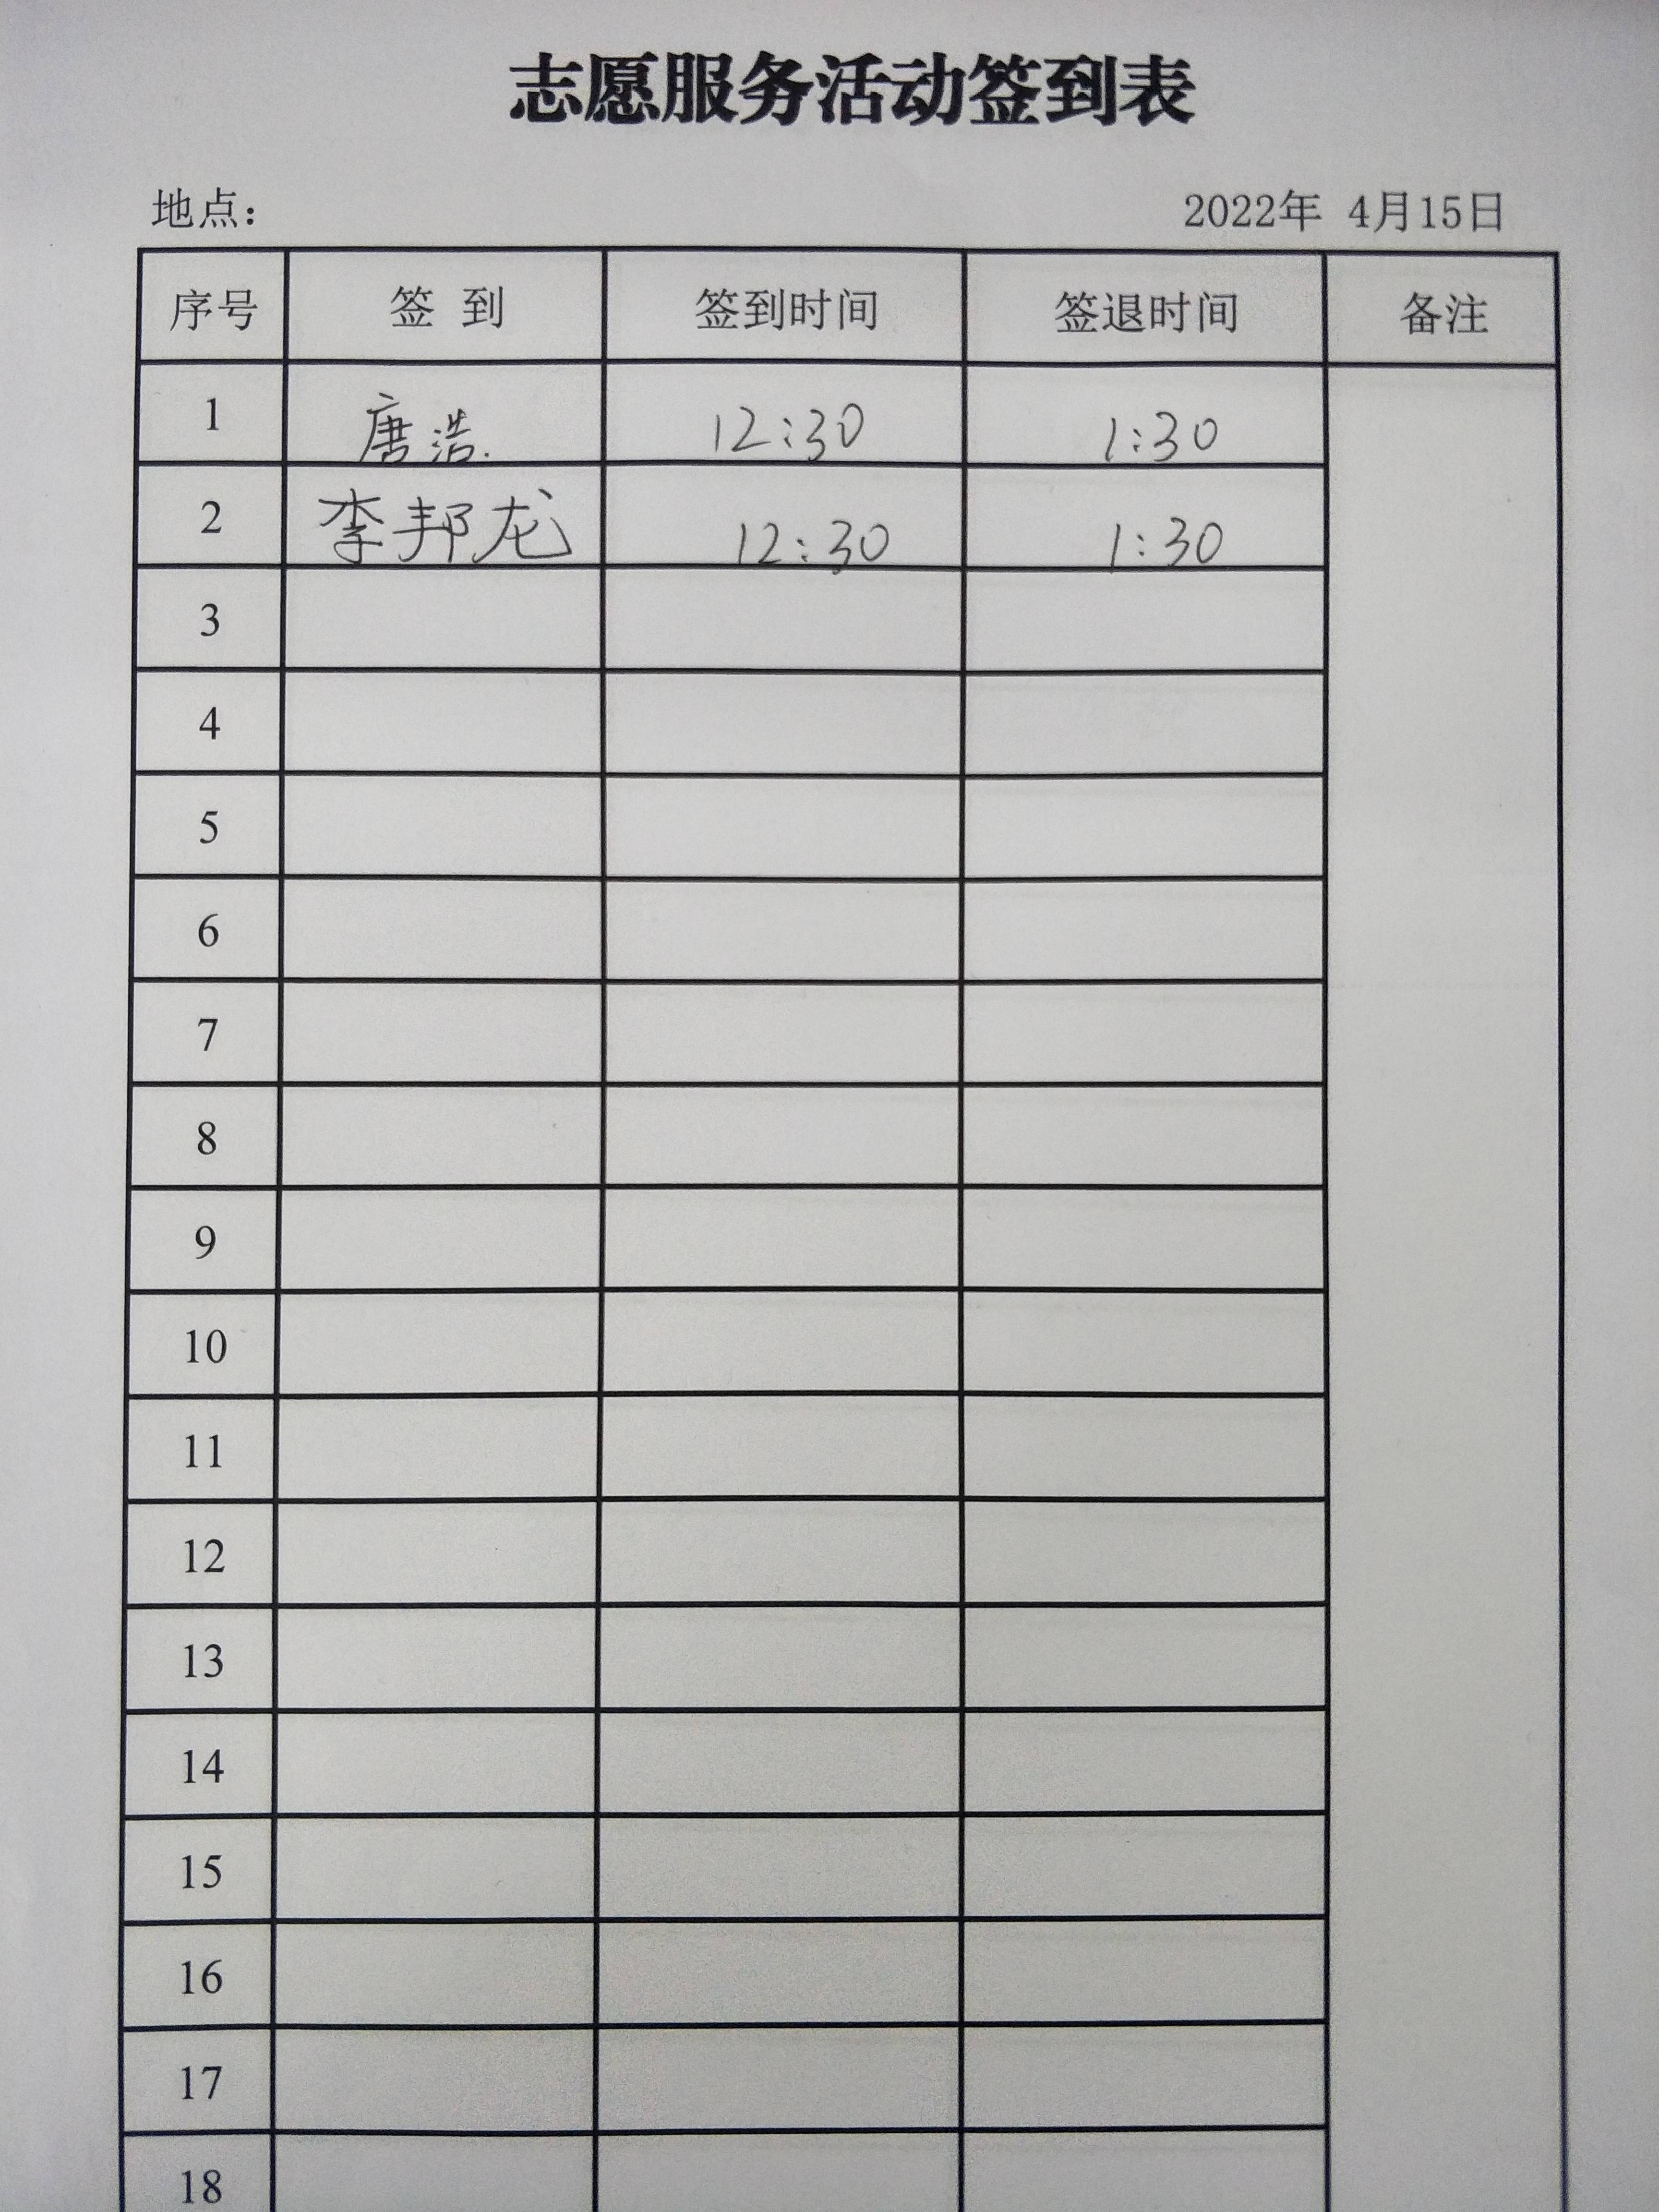 志愿服务活动签到表
地点: 2022年 4月15日
序号 签 到 签到时间 签退时间 备注
1 唐浩. 12:30 1:30
2 李邦龙 12:30 1:30
3
4
5
6
7
8
9
10
11
12
13
14
15
16
17
18